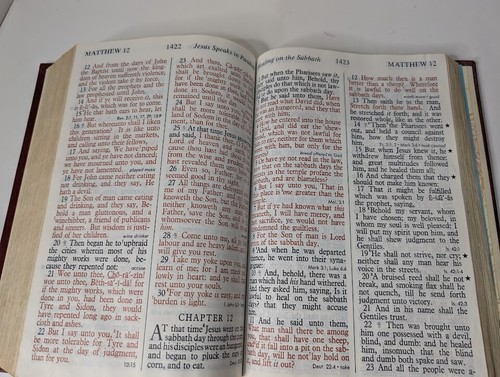 MATTHEW 12
1422
Jesus Speaks in Para
12 And from the days of John
the Baptist until now the king-
dom of heaven suffereth violence,
and the violent take it by force.
13 For all the prophets and the
law prophesied until John.
14 And if ye will receive it, this
is E-li-as, which was for to come.
15 He that hath ears to hear, let
him hear.
16 But whereunto shall I liken
this generation? It is like unto
children sitting in the markets,
and calling unto their fellows,
17 And saying, We have piped
unto you, and ye have not danced;
we have mourned unto you, and
ye have not lamented.
18 For John came neither eating
nor drinking, and they say, He
hath a devil.
19 The Son of man came eating
and drinking, and they say,
Behold a man gluttonous, and a
winebibber, a friend of publicans
and sinners. But wisdom is justi-
fied of her children.
20 Then began he to upbraid
the cities wherein most of his
mighty works were done, be-
cause they repented not:
21 Woe unto thee, Cho-ra-zin!
woe unto thee, Beth-sa-i-da! for
if the mighty works, which were
done in you, had been done in
Tyre and Sidon, they would
have repented long ago in sack-
cloth and ashes.
22 But I say unto you, It shall
be more tolerable for Tyre and
Sidon at the day of judgment,
than for you.
23 And thou,
which art exalted
shalt be brought
for if the
have been done
done in Sodom,
remained until this day.
24 But I say
shall be more
land of Sodom
ment, than for
25 At that time Jesus
and said, I thank
Lord of heaven and
cause thou hast
from the wise and prudent,
hast revealed them
26 Even so, Father:
seemed good in thy sight.
27 All things are
of my Father:
knoweth the Son, but the
neither knoweth any
Father, save the Son,
whomsoever the Son will
him.
28 Come unto me, all
labour and are heavy
will give you rest.
29 Take my yoke upon
learn of me; for I am meek
lowly in heart: and ye shall
rest unto your souls.
30 For my yoke is easy, and my
burden is light.
CHAPTER 12
AT that time Jesus went on the
sabbath day through the corn;
and his disciples were an hungred,
and began to pluck the ears of
corn, and to eat.
ing on the Sabbath
1423
MATTHEW 12
2 But when the Pharisees saw it,
they said unto him, Behold, thy
disciples do that which is not law-
ful to do upon the sabbath day.
3 But he said unto them, Have
ye not read what David did, when
he was an hungred, and they that
were with him;
4 How he entered into the house
of God, and did eat the shew-
bread, which was not lawful for
him to eat, neither for them which
were with him, but only for the
priests?
5 Or have ye not read in the law,
how that on the sabbath days the
priests in the temple profane the
sabbath, and are blameless?
6 But I say unto you, That in
this place is one greater than the
temple.
7 But if ye had known what this
meaneth, I will have mercy, and
not sacrifice, ye would not have
condemned the guiltless.
8 For the Son of man is Lord
even of the sabbath day.
9 And when he was departed
thence, he went into their syna-
gogue:
10 And, behold, there was a
man which had his hand withered.
And they asked him, saying, Is it
lawful to heal on the sabbath
days? that they might accuse
him.
11 And he said unto them,
What man shall there be among
you, that shall have one sheep,
and if it fall into a pit on the sab-
bath day, will he not lay hold on
it, and lift it out?
Deut. 22:4
12 How much then is a man
better than a sheep? Wherefore
it is lawful to do well on the
sabbath days.
13 Then saith he to the man,
Stretch forth thine hand. And
he stretched it forth; and it was
restored whole, like as the other.
14 Then the Pharisees went
out, and held a council against
him, how they might destroy
him.
15 But when Jesus knew it, he
withdrew himself from thence:
and great multitudes followed
him, and he healed them all;
16 And charged them that they
should not make him known:
17 That it might be fulfilled
which was spoken by E-sa-ias
the prophet, saying,
18 Behold my servant, whom
I have chosen; my beloved, in
whom my soul is well pleased: I
will put my spirit upon him, and
he shall shew judgment to the
Gentiles.
19 He shall not strive, nor cry;
neither shall any man hear his
voice in the streets.
20 A bruised reed shall he not
break, and smoking flax shall he
not quench, till he send forth
judgment unto victory.
21 And in his name shall the
Gentiles trust.
22 Then was brought unto
him one possessed with a devil,
blind, and dumb: and he healed
him, insomuch that the blind
and dumb both spake and saw.
23 And all the people were a-